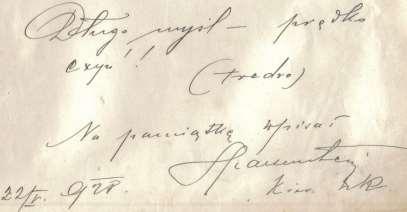 Długo myśl – prędko
czyń!!
(Fredro)
Na pamiątkę wpisał
22/V. 928.
Kier.